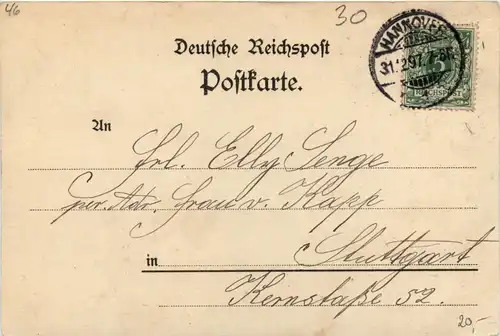 46
30
HANNOVER
31.12.97. 7-8N.
5
REICHSPOST
Deutsche Reichspost
Postkarte.
An
Frl. Elly Senge
per. Adr. Frau v. Kapp
in Stuttgart
Kernstaße 52.
20,-